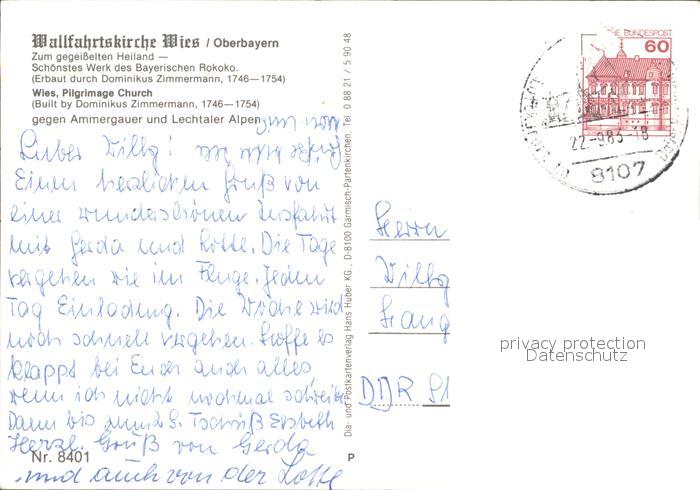 Wallfahrtskirche Wies / Oberbayern
Zum gegeißelten Heiland —
Schönstes Werk des Bayerischen Rokoko.
(Erbaut durch Dominikus Zimmermann, 1746—1754)
Wies, Pilgrimage Church
(Built by Dominikus Zimmermann, 1746—1754)
gegen Ammergauer und Lechtaler Alpen
Lieber Willy!
Einen herzlichen Gruß von
einer wunderschönen Ausfahrt
mit Gerda und Lotte. Die Tage
vergehen wie im Fluge. Jeden
Tag Einladung. Die Woche wird
noch schnell vergehen. Hoffe es
klappt bei Euch auch alles,
wenn ich nicht nochmal schreibe
Dann bis zum 2.9. Tschüß Elsbeth
Herzl. Gruß von Gerda
und auch von der Lotte
Nr. 8401
Dia- und Postkartenverlag Hans Huber KG., D-8100 Garmisch-Partenkirchen, Tel. 0 88 21 / 5 90 48
P
DEUTSCHE BUNDESPOST
60
22.-9.83.-18
8107
Herrn
Willy
Lang
DDR 81
privacy protection
Datenschutz